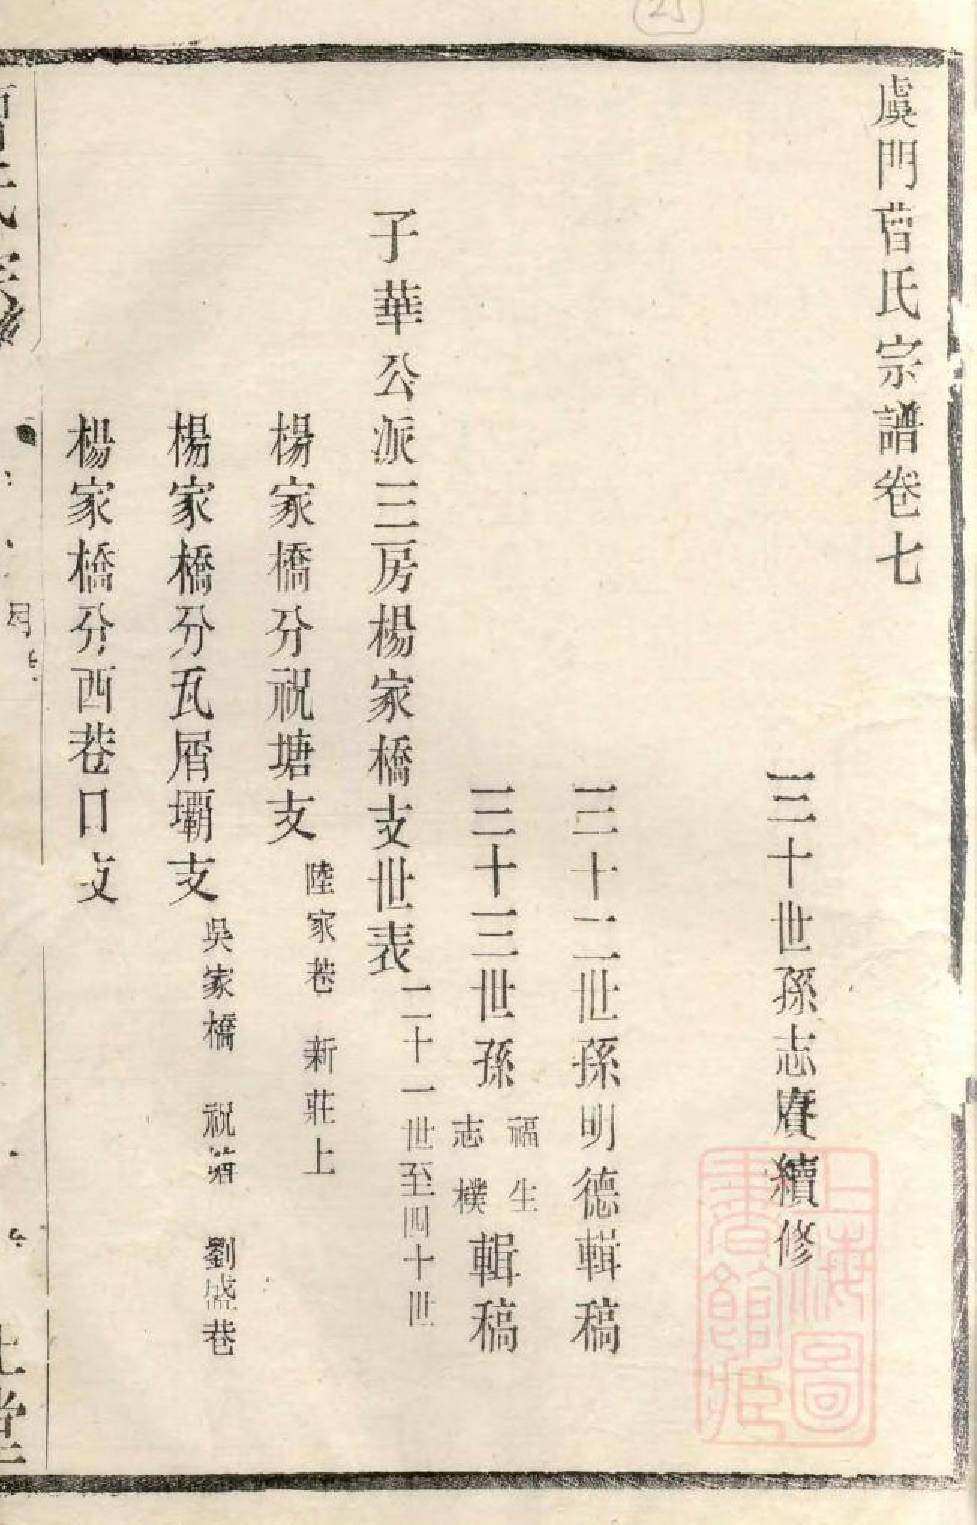 虞門曹氏宗譜卷七
三十世孫志賡續修
三十二世孫明德輯稿
三十三世孫福生志樸輯稿
子華公派三房楊家橋支世表二十一世至四十世
楊家橋分祝塘支陸家巷 新莊上
楊家橋分瓦屑壩支吳家橋 祝 劉盛巷
楊家橋分西巷口支
上海圖書館藏